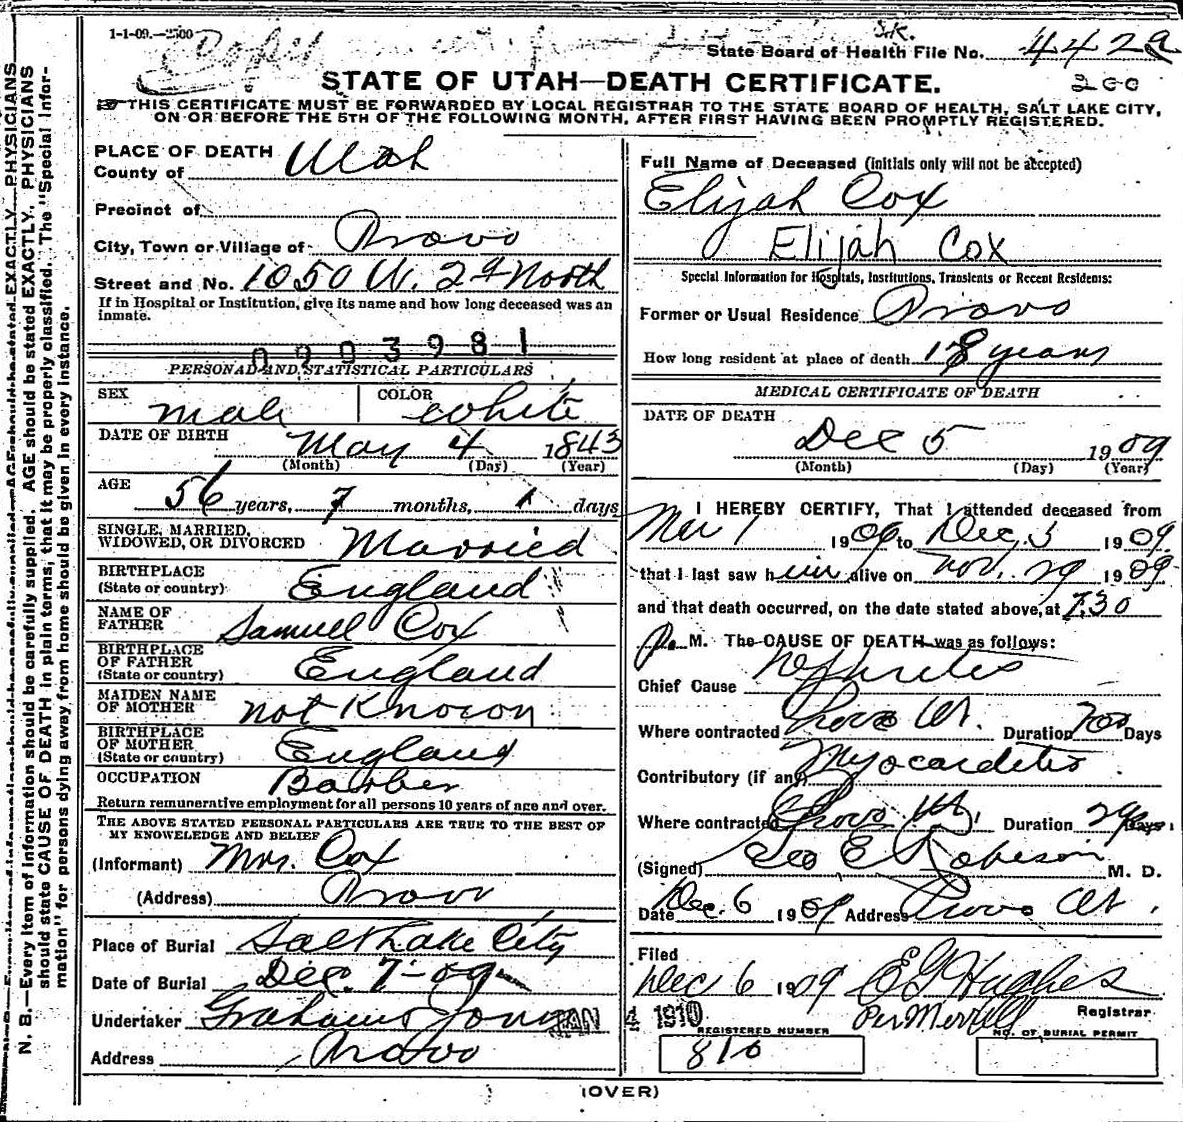 1-1-09.—2500
Copy
S.K.
State Board of Health File No. 442a
STATE OF UTAH—DEATH CERTIFICATE.
200
THIS CERTIFICATE MUST BE FORWARDED BY LOCAL REGISTRAR TO THE STATE BOARD OF HEALTH, SALT LAKE CITY,
ON OR BEFORE THE 5TH OF THE FOLLOWING MONTH, AFTER FIRST HAVING BEEN PROMPTLY REGISTERED.
N. B.—Every item of information should be carefully supplied. AGE should be stated EXACTLY. PHYSICIANS
should state CAUSE OF DEATH in plain terms, that it may be properly classified. The "Special Infor-
mation" for persons dying away from home should be given in every instance.
PLACE OF DEATH
County of Utah
Precinct of
City, Town or Village of Provo
Street and No. 1050 W. 2d North
If in Hospital or Institution, give its name and how long deceased was an
inmate.
0903981
PERSONAL AND STATISTICAL PARTICULARS
SEX male COLOR white
DATE OF BIRTH May 4 1843
(Month) (Day) (Year)
AGE 56 years, 7 months, 1 days
SINGLE, MARRIED,
WIDOWED, OR DIVORCED Married
BIRTHPLACE
(State or country) England
NAME OF
FATHER Samuel Cox
BIRTHPLACE
OF FATHER
(State or country) England
MAIDEN NAME
OF MOTHER not Known
BIRTHPLACE
OF MOTHER
(State or country) England
OCCUPATION Barber
Return remunerative employment for all persons 10 years of age and over.
THE ABOVE STATED PERSONAL PARTICULARS ARE TRUE TO THE BEST OF
MY KNOWLEDGE AND BELIEF
(Informant) Mrs. Cox
(Address) Provo
Place of Burial Salt Lake City
Date of Burial Dec. 7-09
Undertaker Graham
Address Provo
Full Name of Deceased (initials only will not be accepted)
Elijah Cox
Elijah Cox
Special Information for Hospitals, Institutions, Transients or Recent Residents:
Former or Usual Residence Provo
How long resident at place of death 18 years
MEDICAL CERTIFICATE OF DEATH
DATE OF DEATH
Dec 5 1909
(Month) (Day) (Year)
I HEREBY CERTIFY, That I attended deceased from
Mar 1 1909 to Dec, 5 1909
that I last saw him alive on Nov. 29 1909
and that death occurred, on the date stated above, at 7.30
P. M. The CAUSE OF DEATH was as follows:
Chief Cause Nephritis
Where contracted Provo Ut. Duration 700 Days
Contributory (if any) Myocarditis
Where contracted Provo Ut. Duration Days
(Signed) Geo E Robison M. D.
Date Dec. 6 1909 Address Provo Ut.
Filed
Dec 6 1909 E G Hughes
Per Merrill Registrar
JAN 4 1910
REGISTERED NUMBER NO. OF BURIAL PERMIT
816
(OVER)